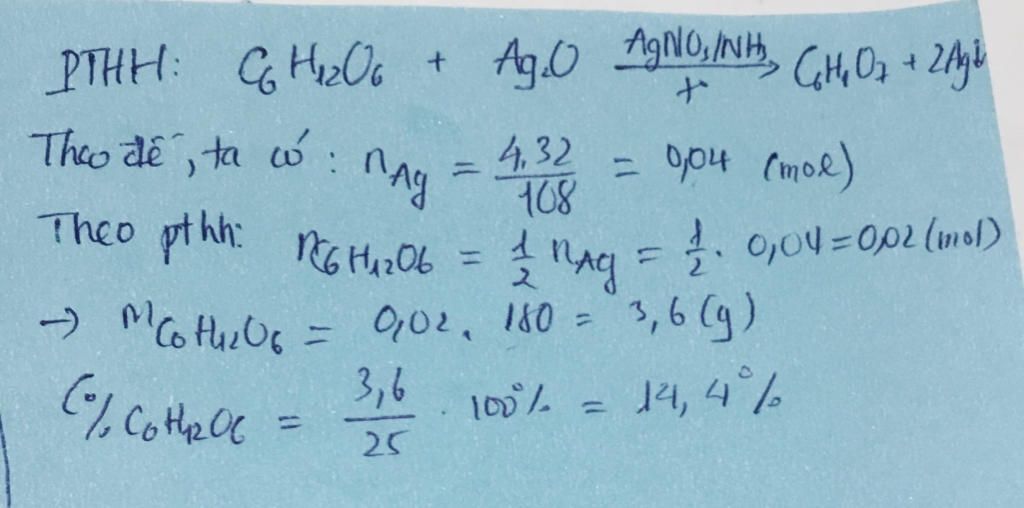 PTHH: C6H12O6 + Ag2O AgNO3/NH3 t° → C6H12O7 + 2Ag↓
Theo đề, ta có: nAg = 4,32/108 = 0,04 (mol)
Theo pthh: nC6H12O6 = 1/2 nAg = 1/2 . 0,04 = 0,02 (mol)
→ mC6H12O6 = 0,02 . 180 = 3,6 (g)
C% C6H12O6 = 3,6/25 . 100% = 14,4%